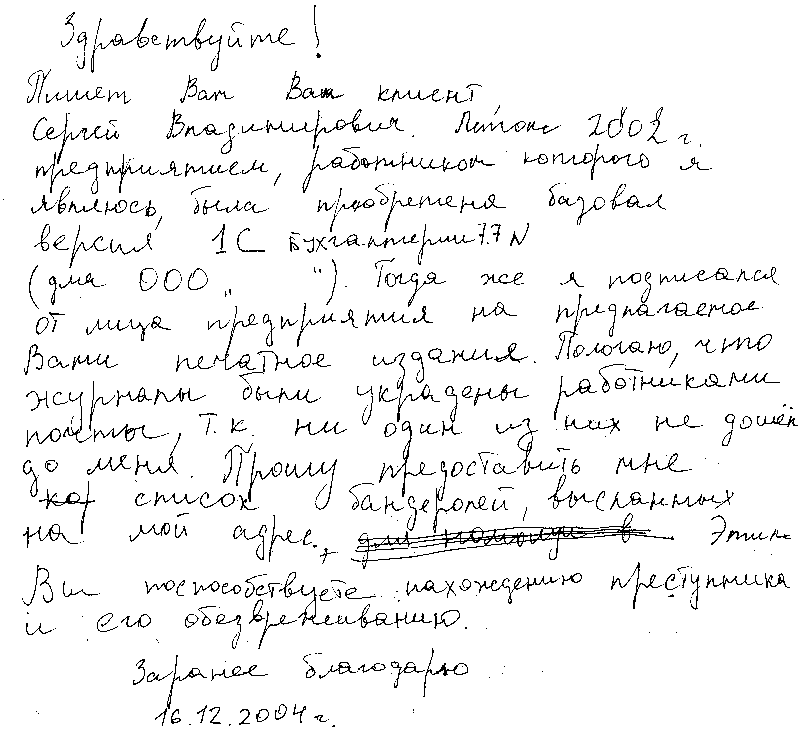 Здравствуйте!
Пишет Вам Ваш клиент,
Сергей Владимирович. Летом 2002 г.
предприятием, работником которого я
являюсь, была приобретена базовая
версия 1С Бухгалтерии 7.7 N
(для ООО „ “). Тогда же я подписался
от лица предприятия на предлагаемое
Вами печатное издания. Пологаю, что
журналы были украдены работниками
почты, т.к. ни один из них не дошёл
до меня. Прошу предоставить мне
список бандеролей, высланных
на мой адрес. Этим
Вы поспособствуете нахождению преступника
и его обезвреживанию.
Заранее благодарю
16.12.2004 г.